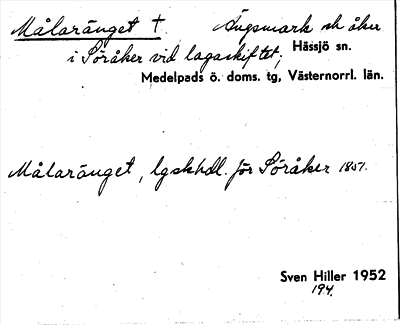 Målaränget † Ängsmark och åker
i Söråker vid lagaskiftet; Hässjö sn.
Medelpads ö. doms. tg, Västernorrl. län.
Målaränget, lgskhdl. för Söråker 1851.
Sven Hiller 1952
194.